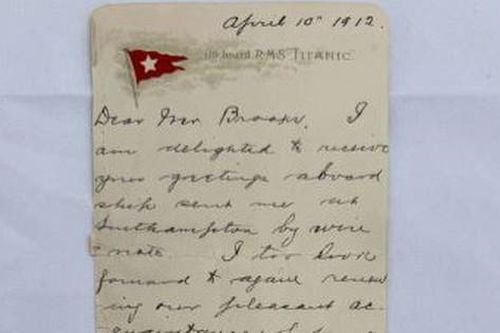 April 10th 1912.
On board R.M.S. "TITANIC"
Dear Mr Brooks, I
am delighted to receive
your greetings aboard
ship sent me at
Southampton by wire
& note. I too look
forward to again renew
ing our pleasant ac-
quaintance